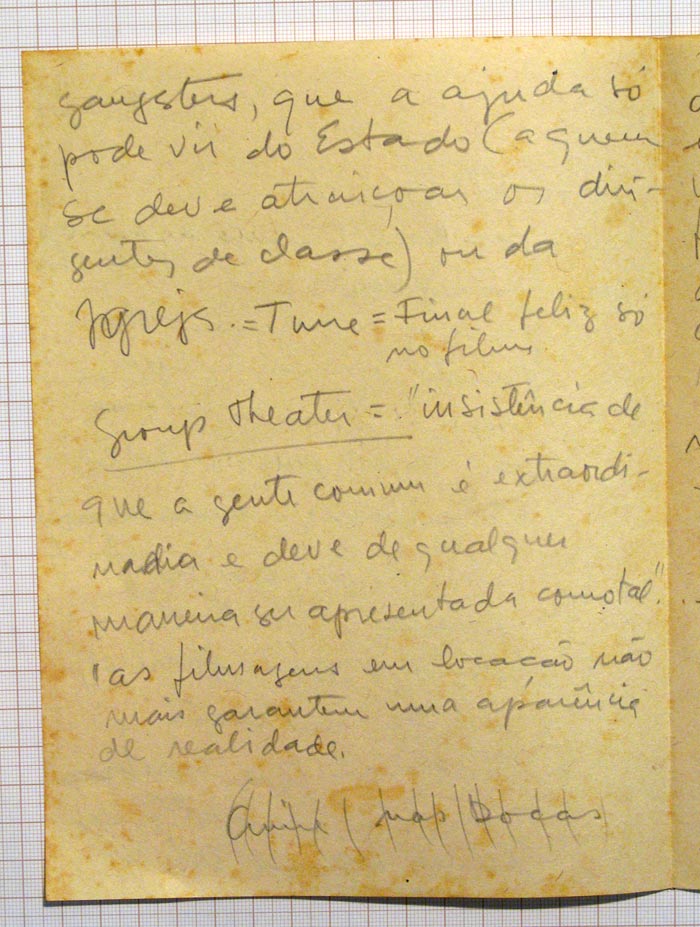 gangsters, que a ajuda só
pode vir do Estado (a quem
se deve atraiçoar os diri-
gentes de classe) ou da
Igreja. = Time = Final feliz só
no filme
Group theater = "insistência de
que a gente comum é extraordi-
nadia e deve de qualquer
maneira ser apresentada como tal".
"as filmagens em locação não
mais garantem uma aparência
de realidade.
nas Docas